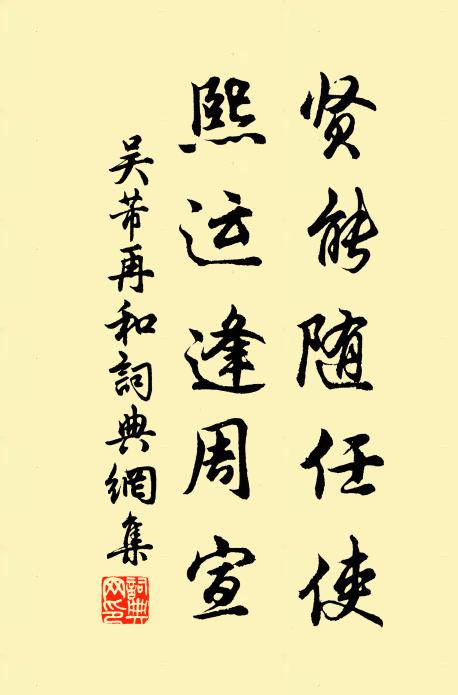 贤能随任使
熙运逢周宣
吴芾再和詞典網集
詞典网印